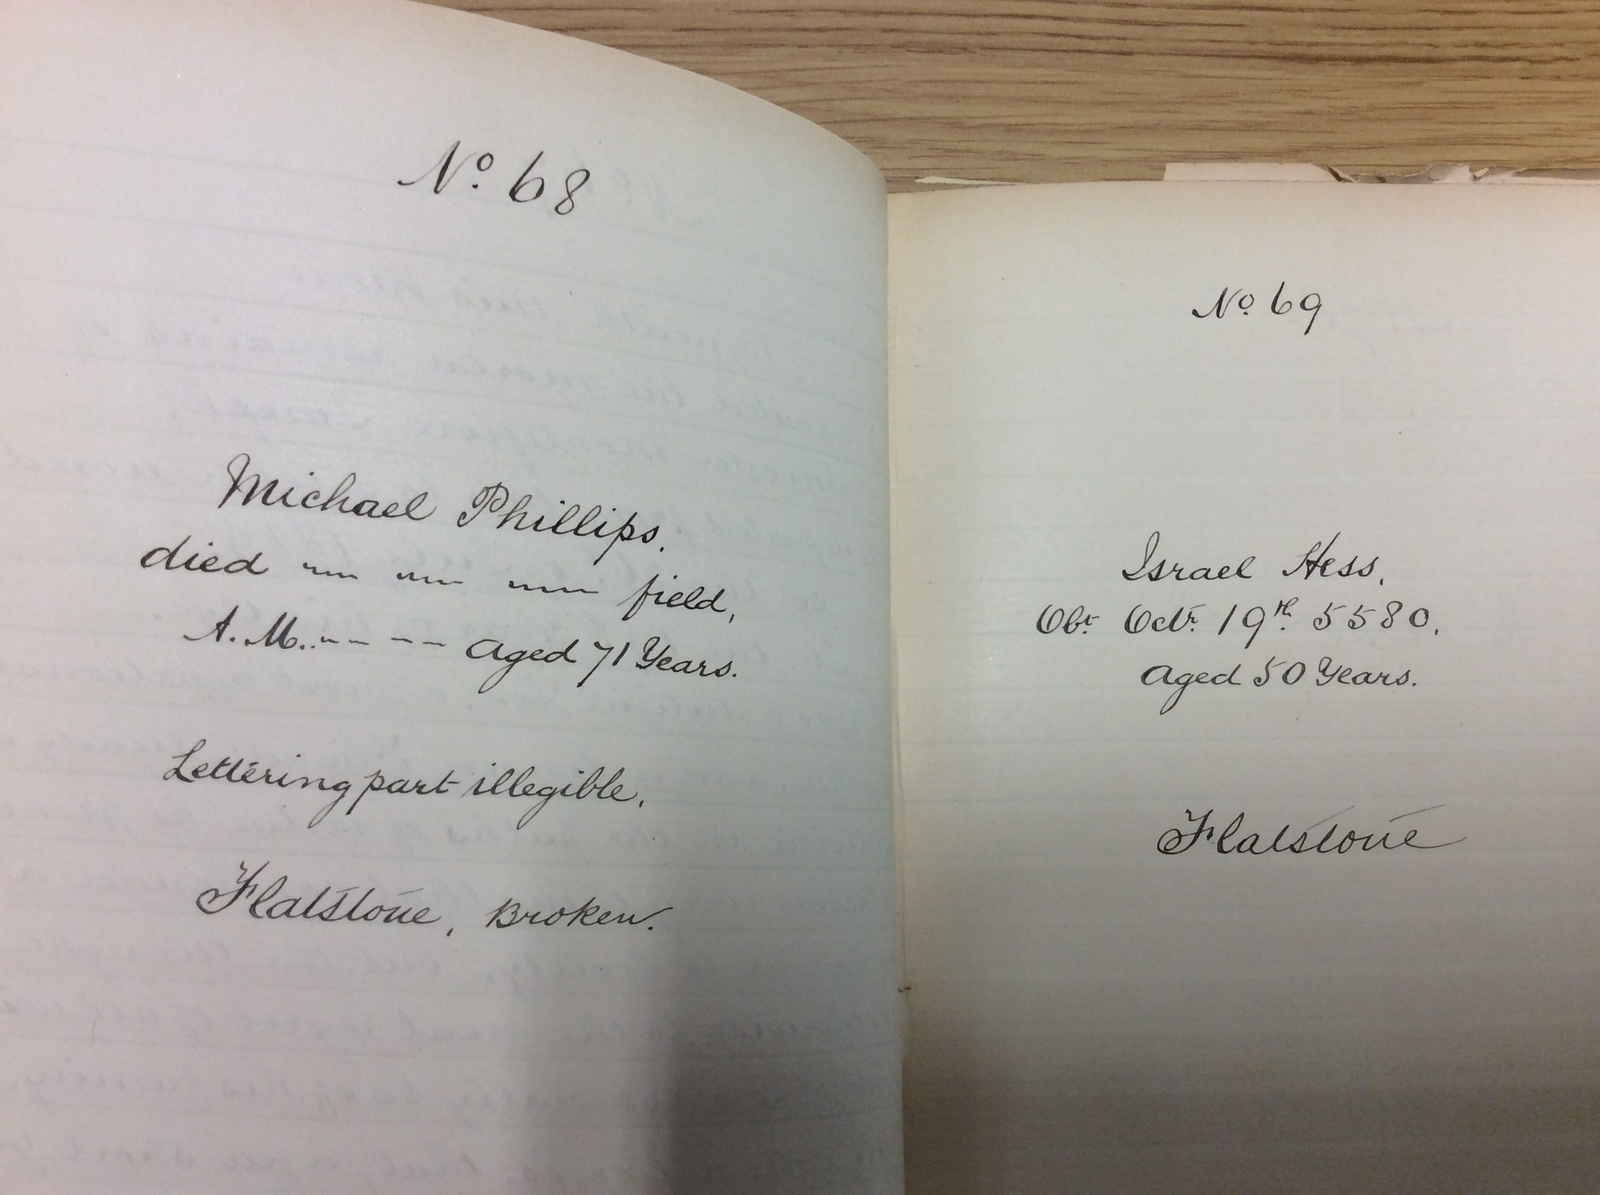 No. 68
Michael Phillips.
died ~~~ ~~~ ~~~ field,
A.M.. -- -- -- aged 71 Years.
Lettering part illegible.
Flatstone, Broken.
No. 69
Israel Hess,
Obt. Octr. 19th. 5580.
aged 50 Years.
Flatstone